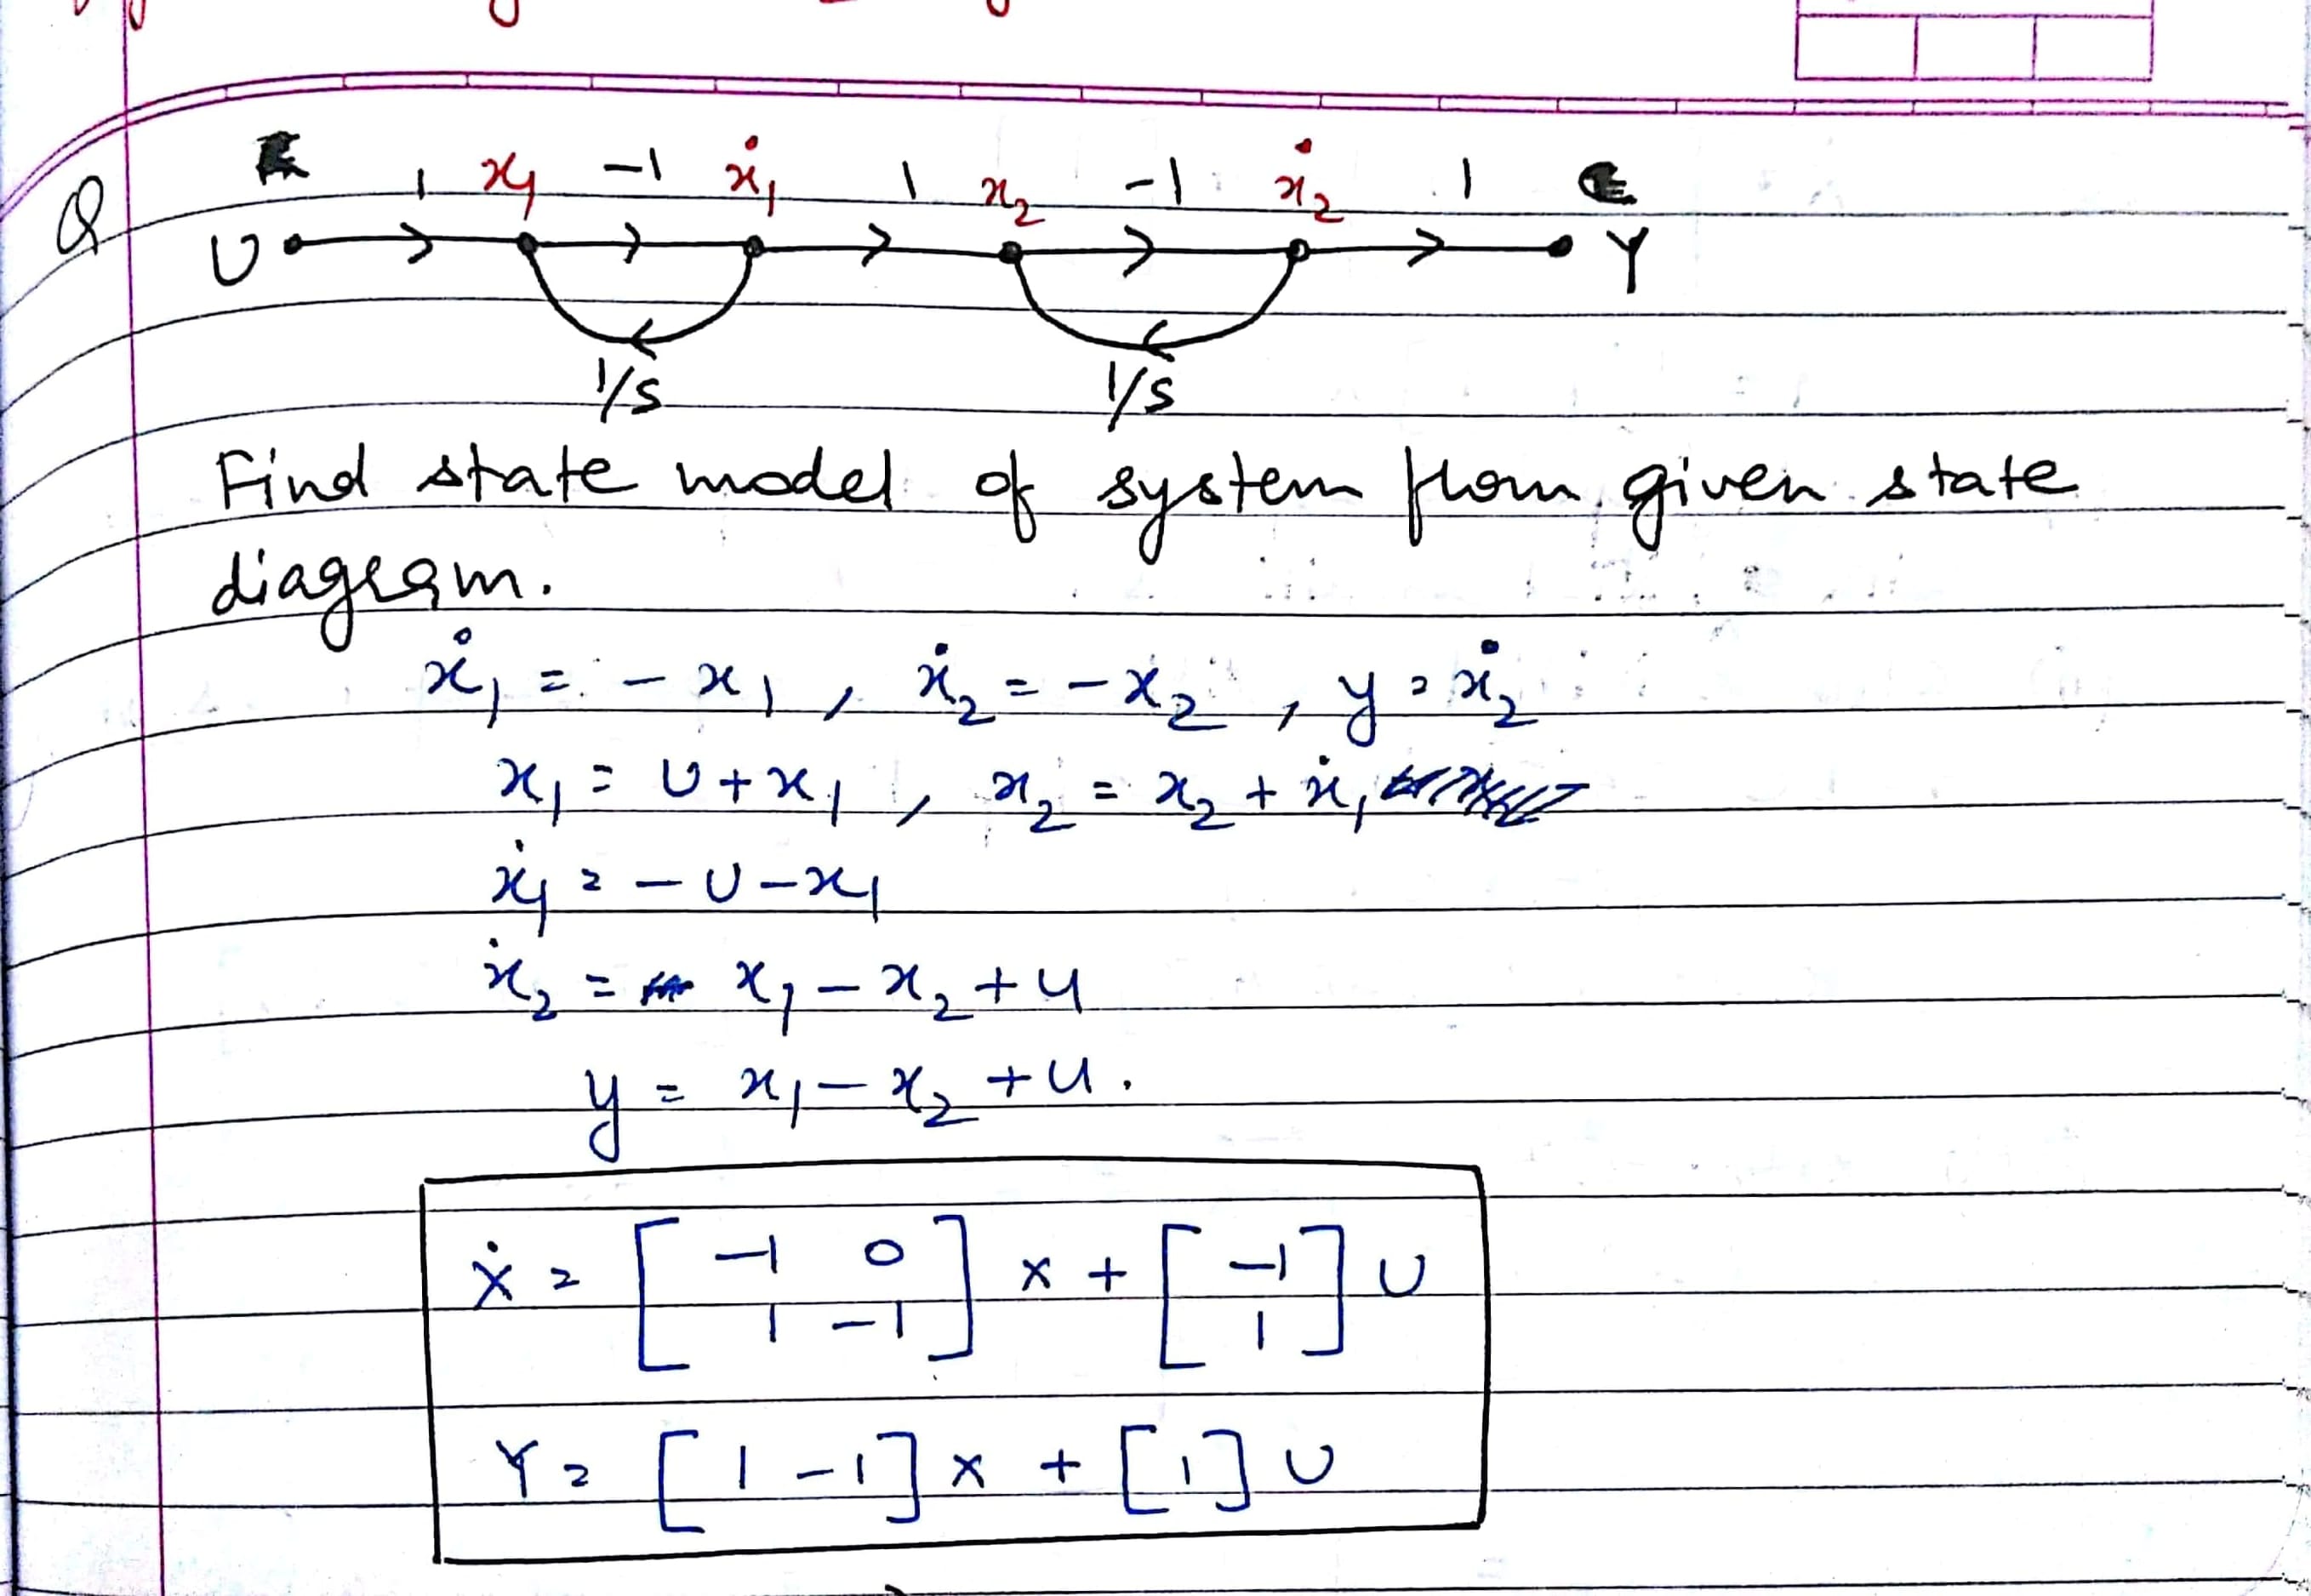 Q
1 x₁ -1 ẋ₁ 1 x₂ -1 ẋ₂ 1
U Y
1/s 1/s
Find state model of system from given state
diagram.
ẋ₁ = - x₁ , ẋ₂ = - x₂ , y = ẋ₂
x₁ = U + x₁ , x₂ = x₂ + ẋ₁
ẋ₁ = - U - x₁
ẋ₂ = x₁ - x₂ + u
y = x₁ - x₂ + u.
Ẋ = [ -1 0 ] x + [ -1 ] U
1 -1 1
Y = [ 1 -1 ] x + [ 1 ] U